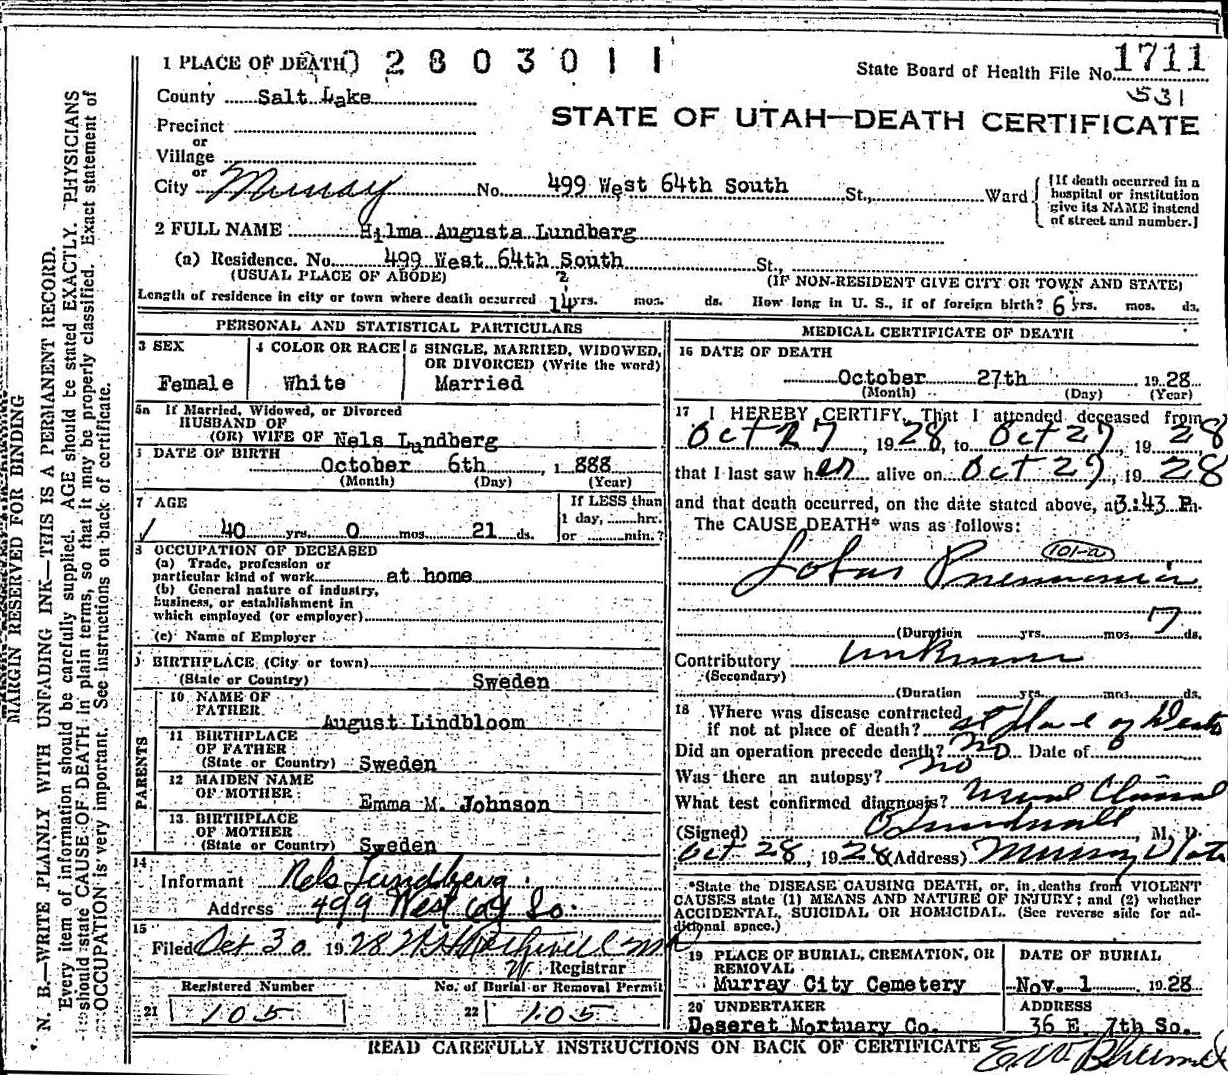 1 PLACE OF DEATH 2 8 0 3 0 1 1
State Board of Health File No. 1711
531
County Salt Lake
STATE OF UTAH—DEATH CERTIFICATE
Precinct
or
Village
or
City Murray No. 499 West 64th South St., Ward
[If death occurred in a
hospital or institution
give its NAME instead
of street and number.]
2 FULL NAME Hilma Augusta Lundberg
(a) Residence. No. 499 West 64th South St.,
(USUAL PLACE OF ABODE) (IF NON-RESIDENT GIVE CITY OR TOWN AND STATE)
2
Length of residence in city or town where death occurred 14 yrs. mos. ds. How long in U. S., if of foreign birth? 6 yrs. mos. ds.
PERSONAL AND STATISTICAL PARTICULARS
3 SEX
Female
4 COLOR OR RACE
White
5 SINGLE, MARRIED, WIDOWED,
OR DIVORCED (Write the word)
Married
5a If Married, Widowed, or Divorced
HUSBAND OF
(OR) WIFE OF Nels Lundberg
DATE OF BIRTH
October 6th, 1 888
(Month) (Day) (Year)
7 AGE
40 yrs. 0 mos. 21 ds.
If LESS than
1 day, hrs.
or min.?
8 OCCUPATION OF DECEASED
(a) Trade, profession or
particular kind of work at home
(b) General nature of industry,
business, or establishment in
which employed (or employer)
(c) Name of Employer
9 BIRTHPLACE (City or town)
(State or Country) Sweden
PARENTS
10 NAME OF
FATHER August Lindbloom
11 BIRTHPLACE
OF FATHER
(State or Country) Sweden
12 MAIDEN NAME
OF MOTHER Emma M. Johnson
13 BIRTHPLACE
OF MOTHER
(State or Country) Sweden
14
Informant Nels Lundberg
Address 499 West 64 So.
15
Filed Oct 30 1928
Registrar
Registered Number
21 105
No. of Burial or Removal Permit
22 105
MEDICAL CERTIFICATE OF DEATH
16 DATE OF DEATH
October 27th 1928
(Month) (Day) (Year)
17 I HEREBY CERTIFY, That I attended deceased from
Oct 27, 1928, to Oct 27, 1928
that I last saw her alive on Oct 27, 1928
and that death occurred, on the date stated above, at 3:43 P.m.
The CAUSE DEATH* was as follows:
101-a
Lobar Pneumonia
(Duration yrs. mos. 7 ds.
Contributory unknown
(Secondary)
(Duration yrs. mos. ds.
18 Where was disease contracted
if not at place of death? at place of death
Did an operation precede death? No Date of
Was there an autopsy? no
What test confirmed diagnosis? Usual Clinical
(Signed) M. D.
Oct 28, 1928 (Address) Murray Utah
*State the DISEASE CAUSING DEATH, or, in deaths from VIOLENT
CAUSES state (1) MEANS AND NATURE OF INJURY; and (2) whether
ACCIDENTAL, SUICIDAL OR HOMICIDAL. (See reverse side for ad-
ditional space.)
19 PLACE OF BURIAL, CREMATION, OR
REMOVAL
Murray City Cemetery
DATE OF BURIAL
Nov. 1 1928
20 UNDERTAKER
Deseret Mortuary Co.
ADDRESS
36 E. 7th So.
READ CAREFULLY INSTRUCTIONS ON BACK OF CERTIFICATE
MARGIN RESERVED FOR BINDING
N. B.—WRITE PLAINLY WITH UNFADING INK—THIS IS A PERMANENT RECORD.
Every item of information should be carefully supplied. AGE should be stated EXACTLY. PHYSICIANS
should state CAUSE OF DEATH in plain terms, so that it may be properly classified. Exact statement of
OCCUPATION is very important. See instructions on back of certificate.